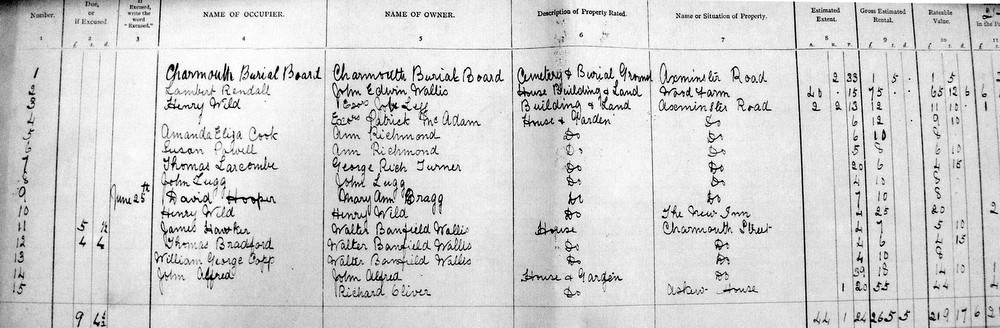 Number. Due, or if Excused. If Excused, write the word "Excused." NAME OF OCCUPIER. NAME OF OWNER. Description of Property Rated. Name or Situation of Property. Estimated Extent. Gross Estimated Rental. Rateable Value.
1 2 3 4 5 6 7 8 9 10 11
£ s. d. A. R. P. £ s. d. £ s. d.
1 Charmouth Burial Board Charmouth Burial Board Cemetery & Burial Ground Axminster Road 2 33 1 5 1 5
2 Lambert Rendall John Edwin Wallis House Building & Land Wood Farm 20 . 15 75 65 12 6
3 Henry Wild Building & Land Axminster Road 2 2 13 12 11 10
4 Exors Patrick McAdam House & Garden Do 6 12 9 10
5 Amanda Eliza Cook Ann Richmond Do Do 6 10 8
6 Susan Powell Ann Richmond Do Do 5 8 6 10
7 Thomas Larcombe George Rich Turner Do Do 20 6 4 15
8 John Lugg John Lugg Do Do 4 10 8
9 June 25th David Hooper Mary Ann Bragg Do Do 7 10 8
10 Henry Wild Henry Wild Do The New Inn 4 25 20
11 5 ½ James Hawker Walter Banfield Wallis House Charmouth Street 2 7 5 10
12 4 4 Thomas Bradford Walter Banfield Wallis Do Do 4 6 4 15
13 William George Copp Walter Banfield Wallis Do Do 4 10 8
14 John Alfred John Alfred House & Garden Do 39 18 14 10
15 Richard Oliver Do Askew House 1 20 55 44
9 4½ 44 1 24 265 5 219 17 6